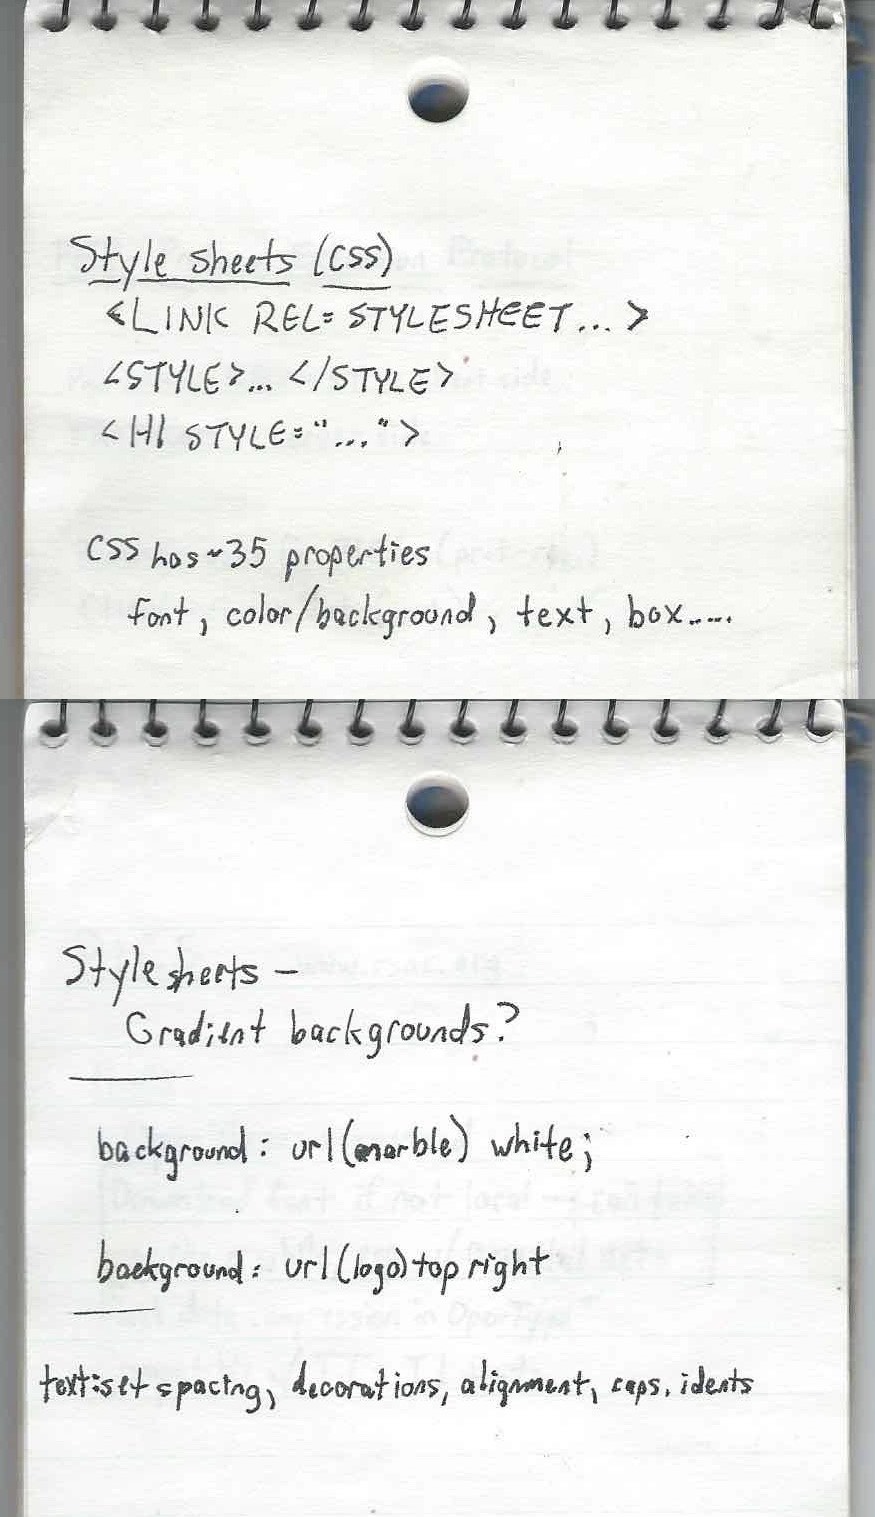 Style sheets (CSS)
<LINK REL=STYLESHEET...>
<STYLE>... </STYLE>
<H1 STYLE="...">
CSS has ~35 properties
font, color/background, text, box.....
Style sheets -
Gradient backgrounds?
background: url(marble) white;
background: url(logo) top right
text: set spacing, decorations, alignment, caps, idents